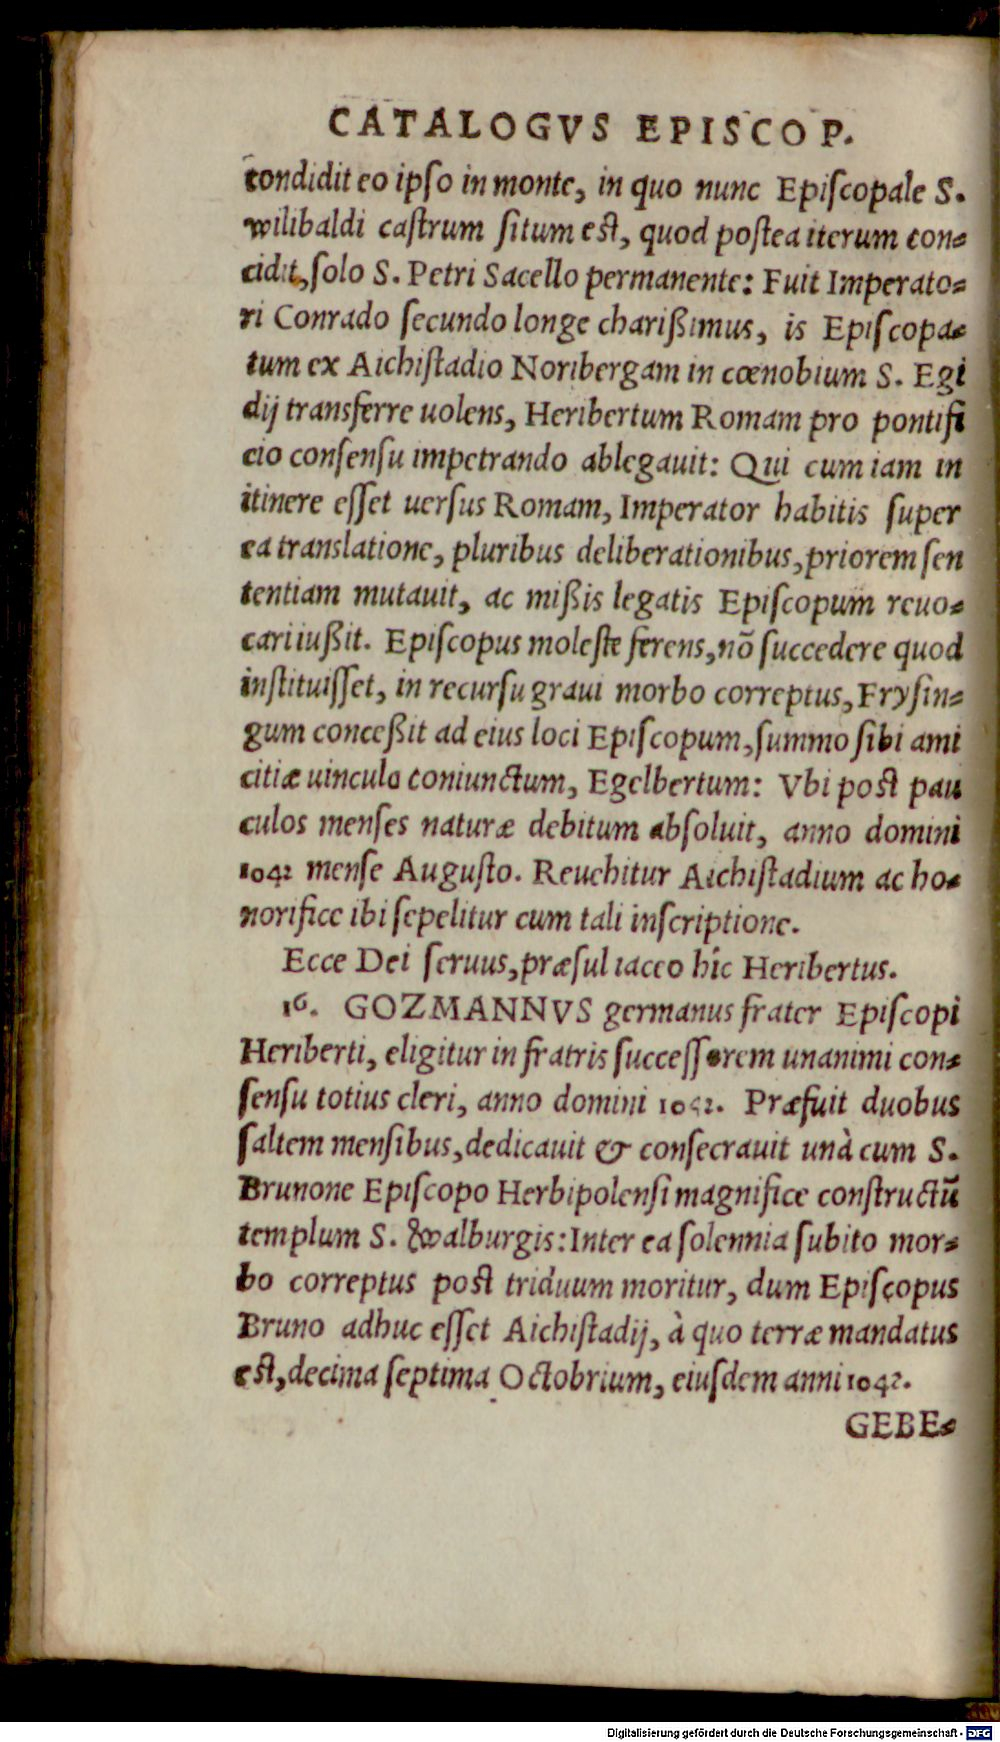 CATALOGVS EPISCOP.
condidit eo ipso in monte, in quo nunc Episcopale S.
wilibaldi castrum situm est, quod postea iterum con-
cidit, solo S. Petri Sacello permanente: Fuit Imperato-
ri Conrado secundo longe charißimus, is Episcopa-
tum ex Aichistadio Noribergam in cœnobium S. Egi
dij transferre uolens, Heribertum Romam pro pontifi
cio consensu impetrando ablegauit: Qui cum iam in
itinere esset uersus Romam, Imperator habitis super
ea translatione, pluribus deliberationibus, priorem sen
tentiam mutauit, ac mißis legatis Episcopum reuo-
cari iußit. Episcopus moleste ferens, nō succedere quod
instituisset, in recursu graui morbo correptus, Frysin-
gum conceßit ad eius loci Episcopum, summo sibi ami
citiæ uinculo coniunctum, Egelbertum: Vbi post pau
culos menses naturæ debitum absoluit, anno domini
1042 mense Augusto. Reuehitur Aichistadium ac ho-
norifice ibi sepelitur cum tali inscriptione.
Ecce Dei seruus, præsul iaceo hîc Heribertus.
16. GOZMANNVS germanus frater Episcopi
Heriberti, eligitur in fratris successorem unanimi con-
sensu totius cleri, anno domini 1042. Præfuit duobus
saltem mensibus, dedicauit & consecrauit unà cum S.
Brunone Episcopo Herbipolensi magnifice constructū
templum S. Walburgis: Inter ea solennia subito mor-
bo correptus post triduum moritur, dum Episcopus
Bruno adhuc esset Aichistadij, à quo terræ mandatus
est, decima septima Octobrium, eiusdem anni 1042.
GEBE-
Digitalisierung gefördert durch die Deutsche Forschungsgemeinschaft - DFG